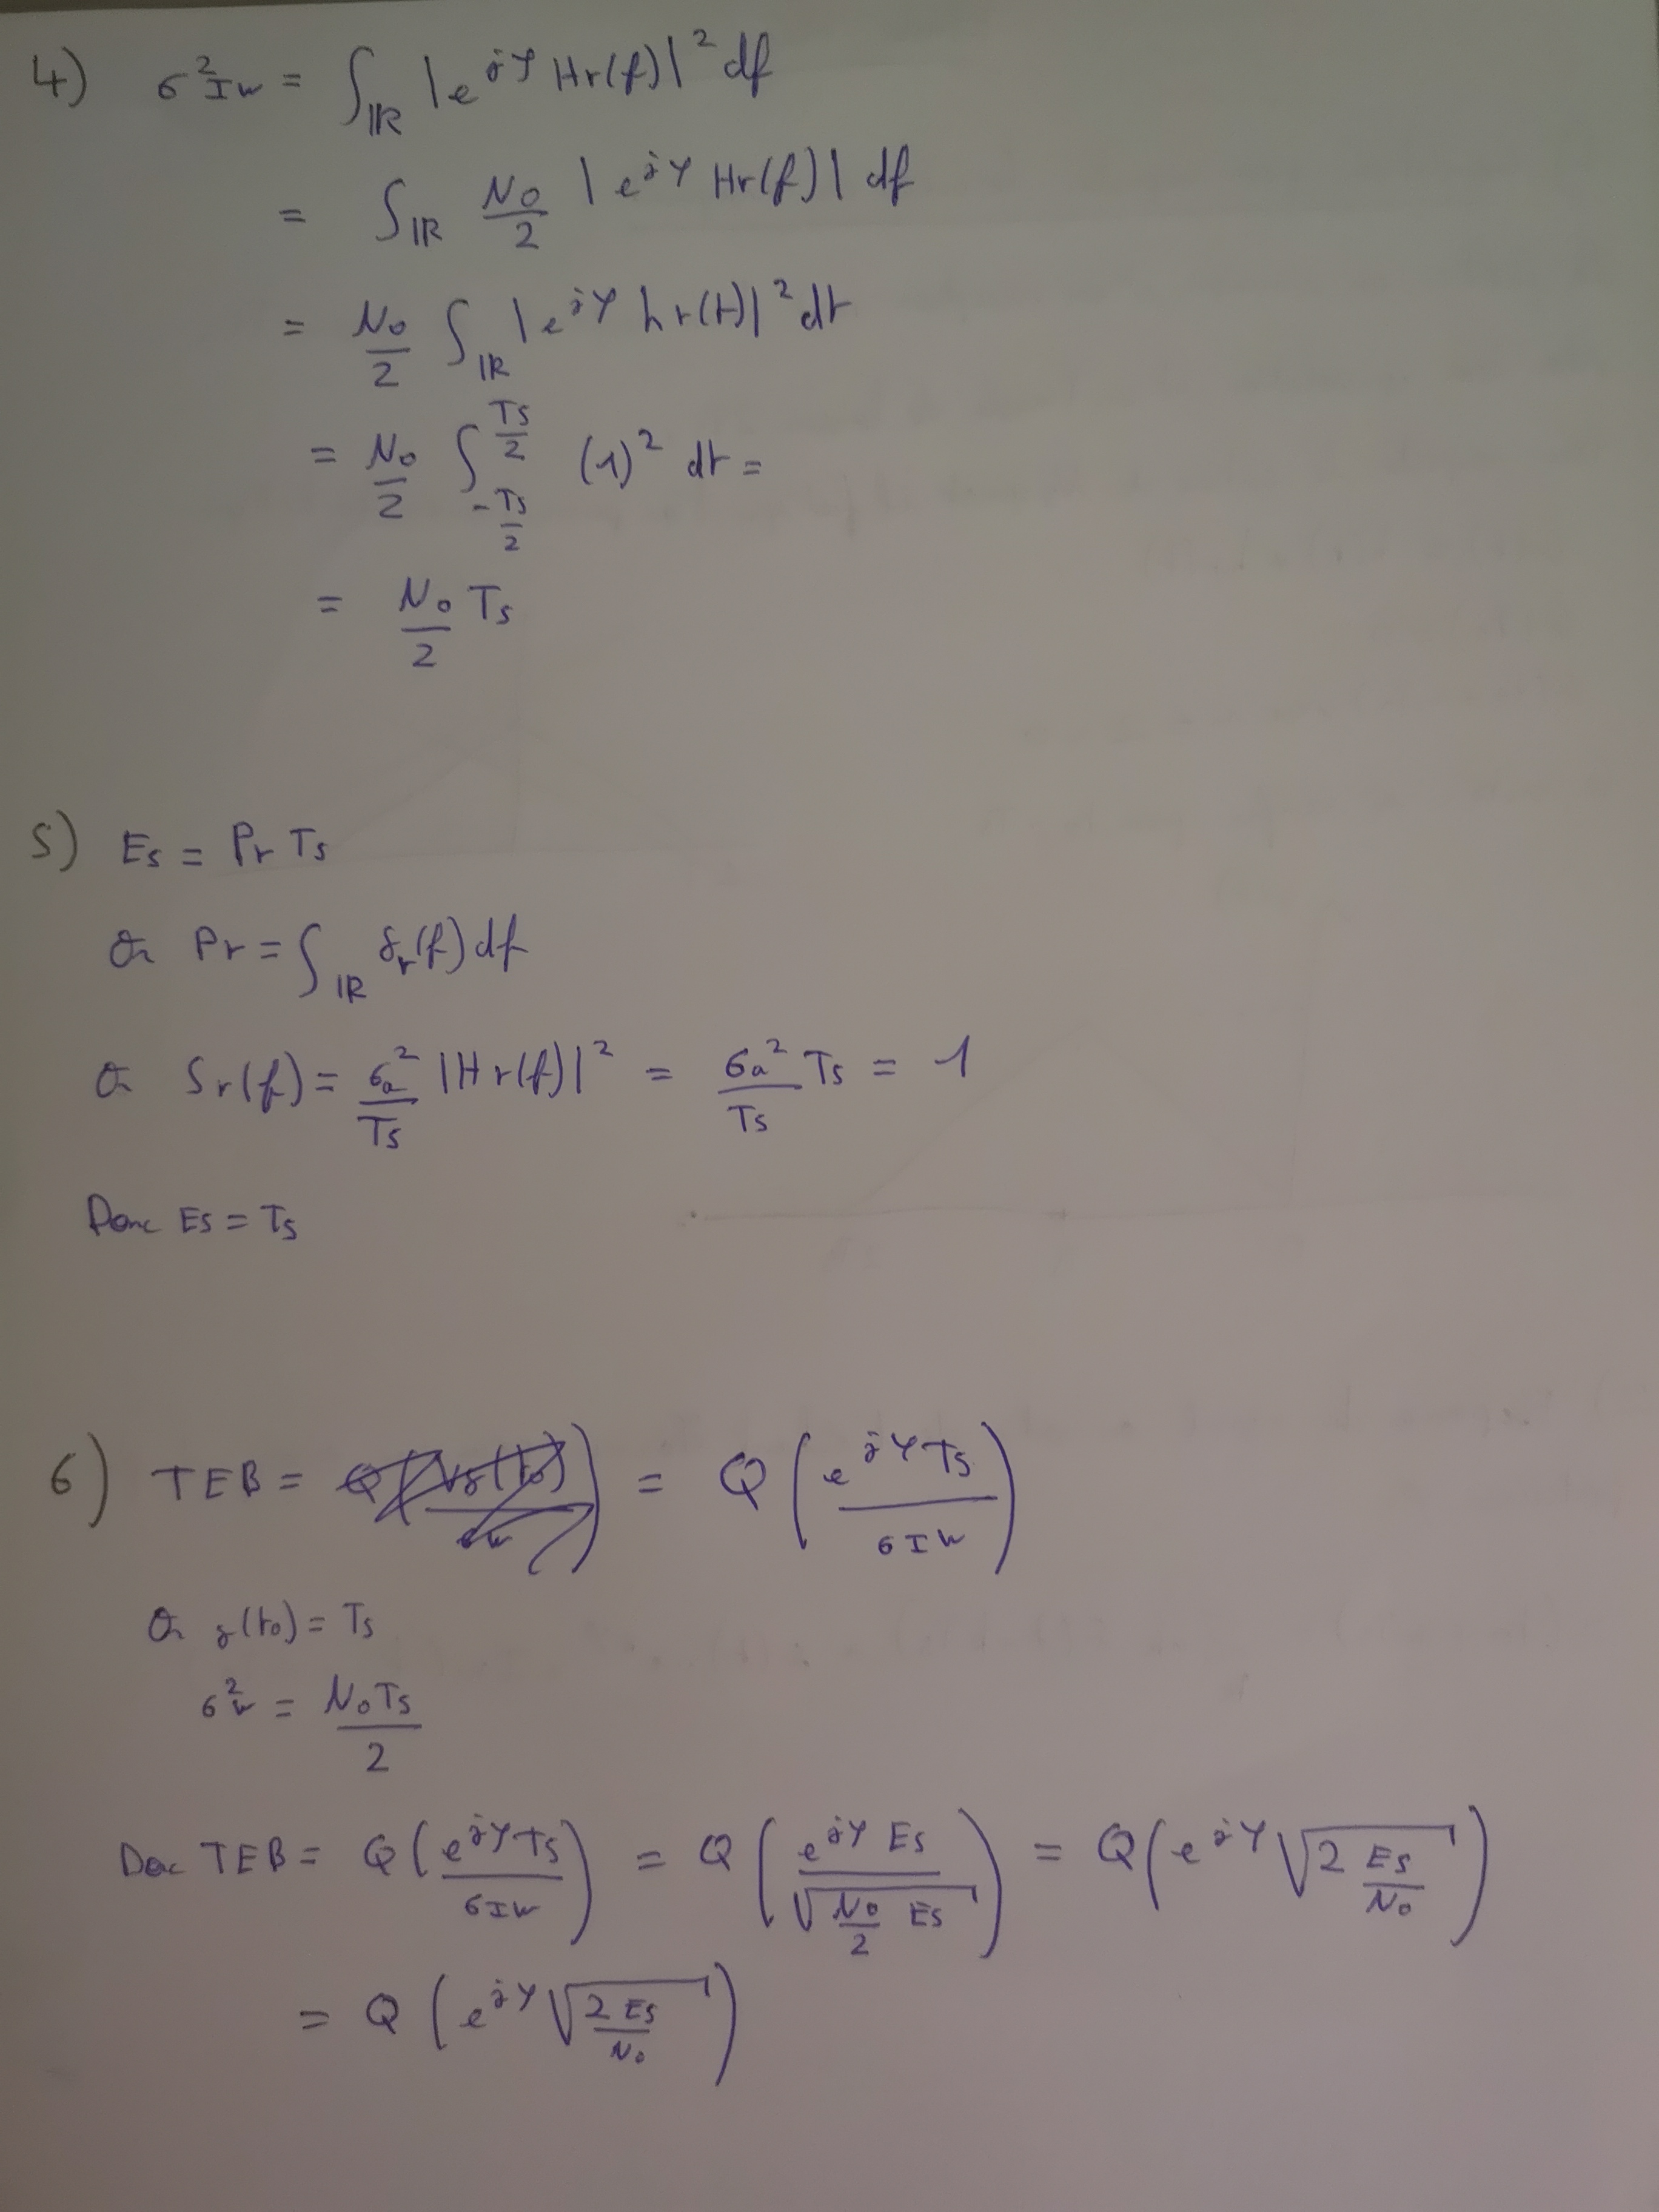 4) σ²Iw = ∫ℝ |e^{jφ} Hr(f)|² df
= ∫ℝ N0/2 |e^{jφ} Hr(f)| df
= N0/2 ∫ℝ |e^{jφ} hr(t)|² dt
= N0/2 ∫_{-Ts/2}^{Ts/2} (1)² dt =
= N0/2 Ts
5) Es = Pr Ts
Or Pr = ∫ℝ Sr(f) df
Or Sr(f) = σa²/Ts |Hr(f)|² = σa²/Ts Ts = 1
Donc Es = Ts
6) TEB = = Q(e^{jφ} Ts / σIw)
Or g(t0) = Ts
σ²w = N0Ts/2
Donc TEB = Q(e^{jφ} Ts / σIw) = Q(e^{jφ} Es / √(N0/2 Es)) = Q(e^{jφ} √(2 Es/N0))
= Q(e^{jφ} √(2 Es/N0))